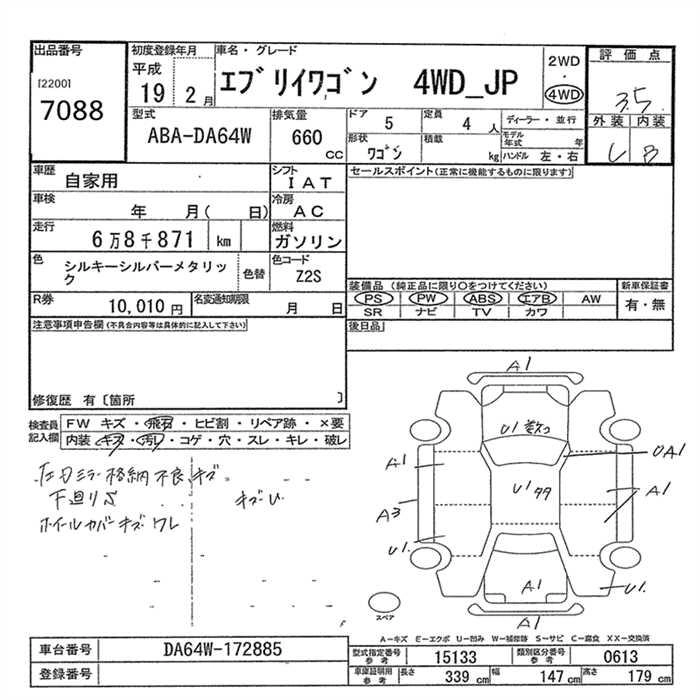 出品番号
[2200]
7088
初度登録年月
平成
19
2 月
車名・グレード
エブリイワゴン 4WD_JP
2WD
・
4WD
評価点
3.5
外装 内装
B
型式
ABA-DA64W
排気量
660
CC
ドア
5
定員
4 人
ディーラー・並行
形状
ワゴン
積載
kg
モデル年式
年
ハンドル 左・右
車歴
自家用
シフト
IAT
車検
年 月( 日)
冷房
AC
走行
6万8千871 km
燃料
ガソリン
色
シルキーシルバーメタリック
色替
色コード
Z2S
R券
10,010 円
名変通知期限
月 日
セールスポイント(正常に機能するものに限ります)
装備品 (純正品に限り○をつけてください)
PS PW ABS エアB AW
SR ナビ TV カワ
新車保証書
有・無
後日品
注意事項申告欄 (不具合内容等は具体的に記入して下さい)
修復歴 有〔箇所 〕
検査員記入欄
FW キズ・飛石・ヒビ割・リペア跡・×要
内装 キズ・汚レ・コゲ・穴・スレ・キレ・破レ
ミラー格納不良、キズ
下廻りS
キズU
ホイールカバーキズワレ
A1
U1 数コ
A1
UA1
U1 タタ
A1
A3
U1.
U1.
A1
A1
スペア
A-キズ E-エクボ U-凹み W-補修跡 S-サビ C-腐食 XX-交換済
車台番号
DA64W-172885
登録番号
型式指定番号 参考
15133
類別区分番号 参考
0613
車庫証明用 参考
長さ 339 cm
幅 147 cm
高さ 179 cm